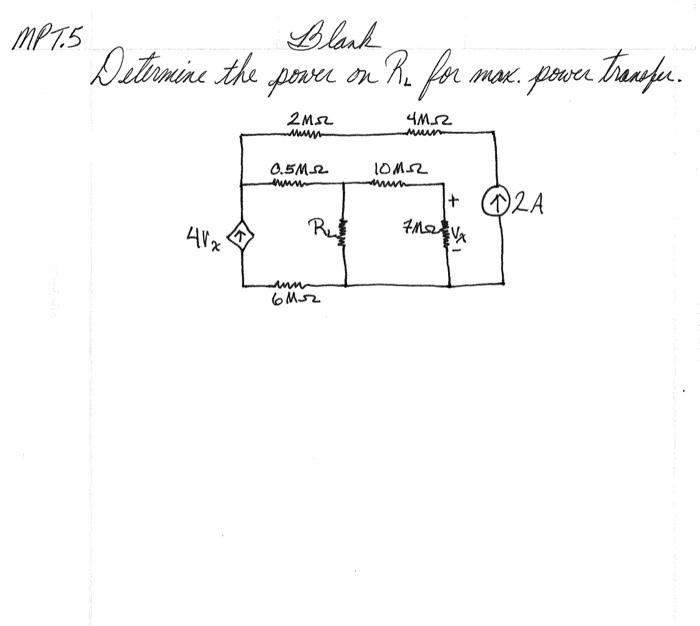 MPT.5 Blank
Determine the power on RL for max. power transfer.
2MΩ 4MΩ
0.5MΩ 10MΩ
+
2A
4Vx RL 7MΩ Vx
-
6MΩ